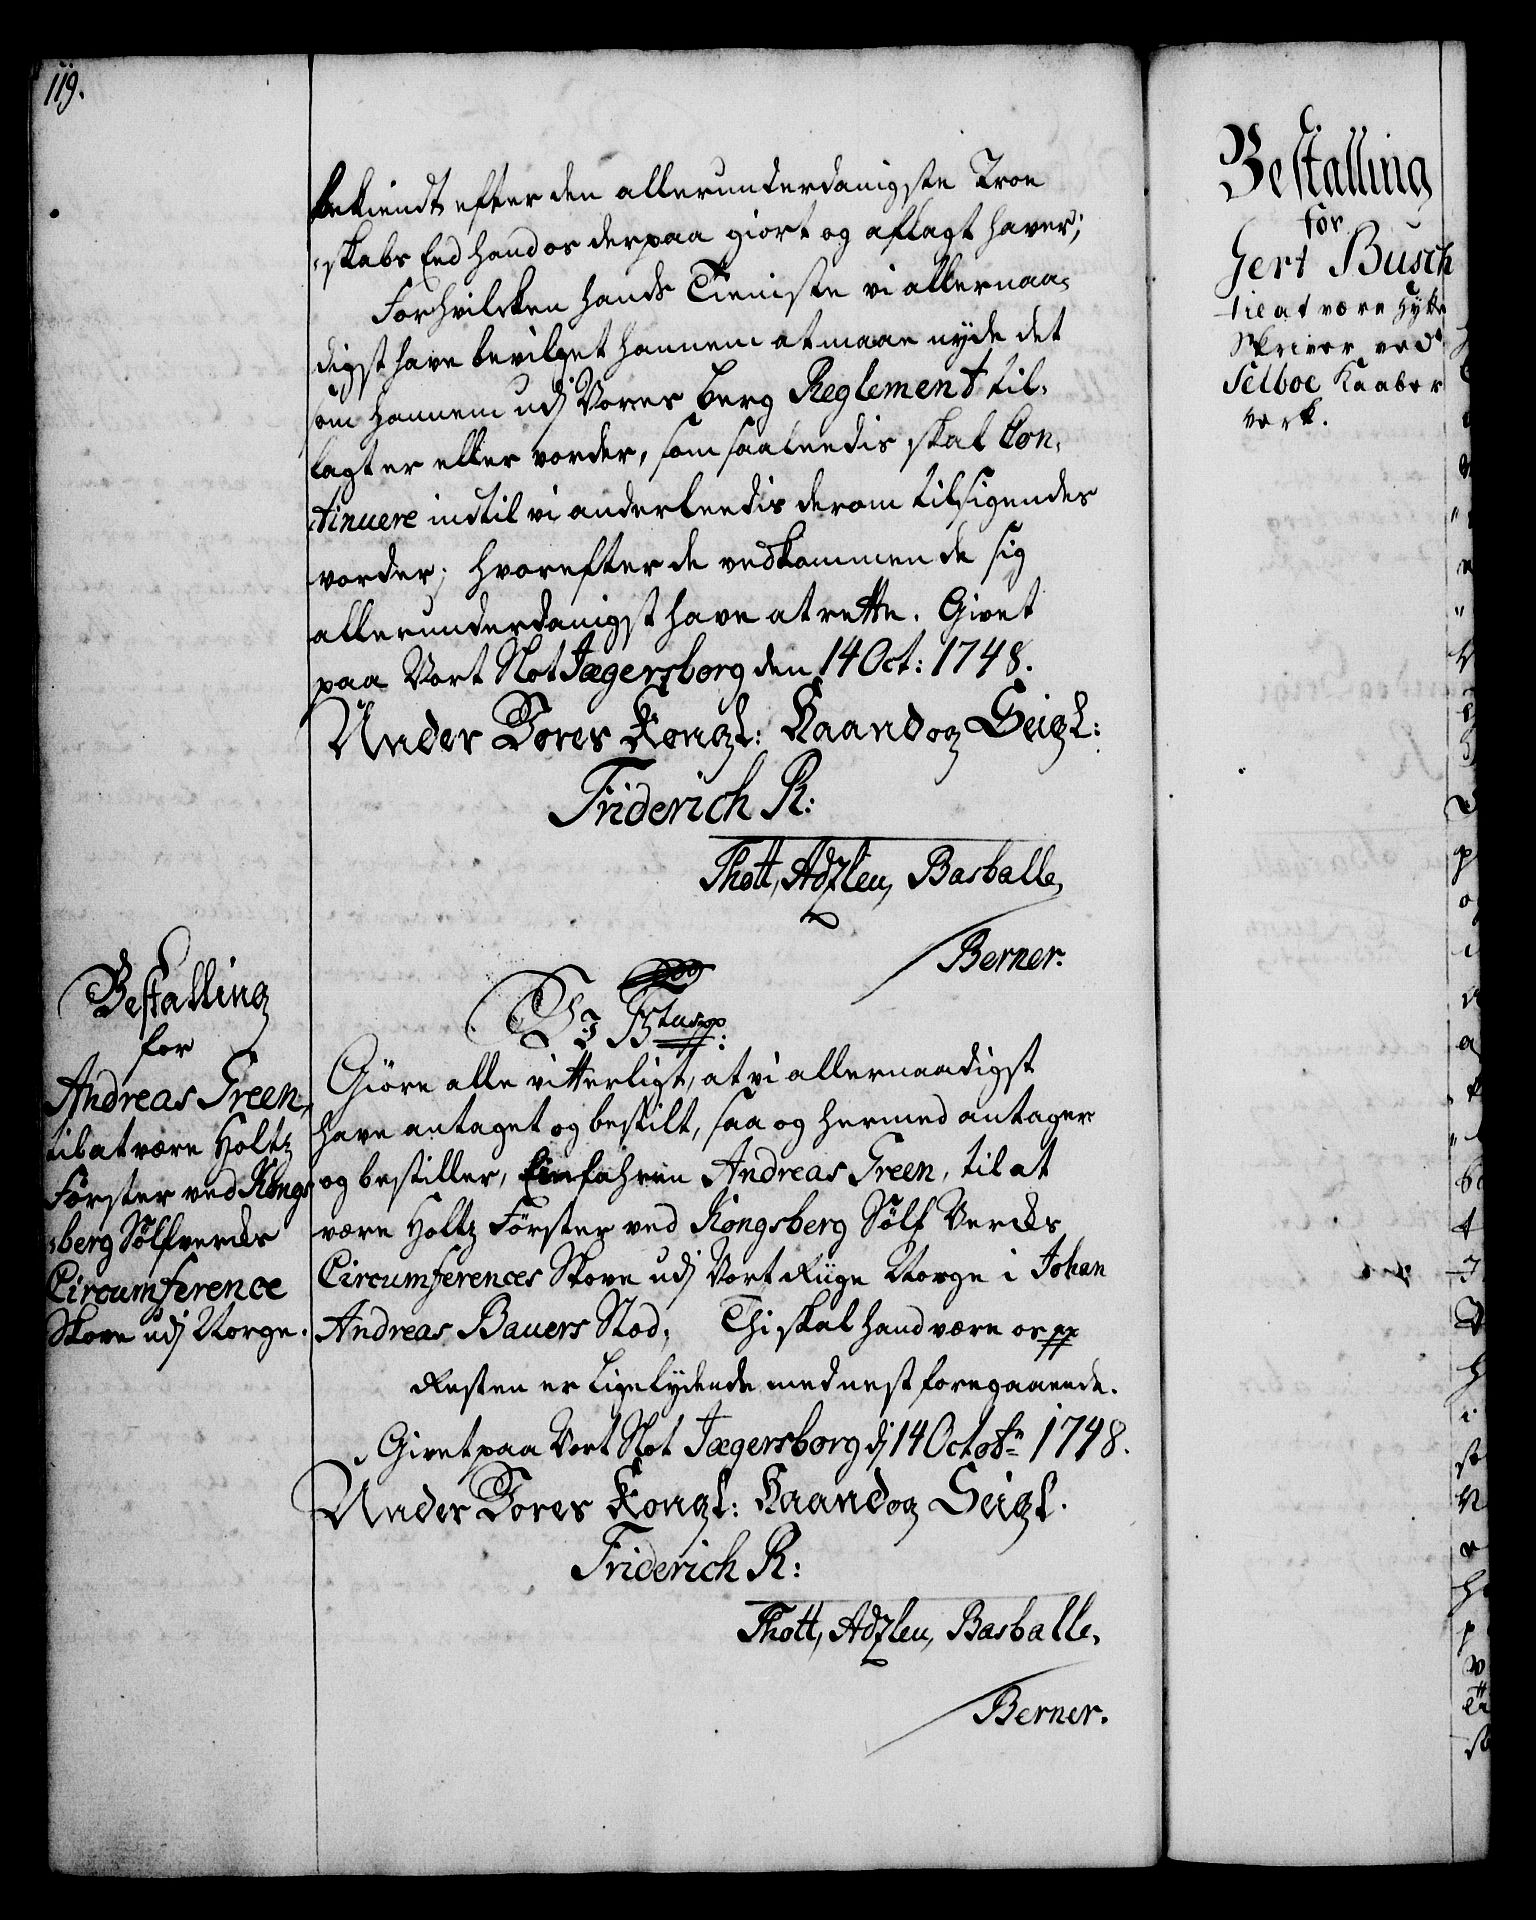 119.
bekiendt efter den allerunderdanigste Troe
skabs Eed hand os derpaa giort og aflagt haver;
Forhvilcken hands Tieniste vi allernaa-
digst have bevilget hannem at maae nyde det
som hannem udj Vores berg Reglement til-
lagt er eller vorder, som saaleedis skal Con-
tinuere indtil vi anderleedis derom tilsigendes
vorder; hvorefter de vedkommende sig
allerunderdanigst have at rette. Givet
paa Vort Slot Jægersborg den 14 Oct: 1748.
Under Vores Kongl: Haand og Seigl:
Friderich R:
Thott, Adzleu, Basballe,
Berner.
Bestalling
for
Andreas Green,
til at være Holtz
Förster ved Kongs
berg Sölfvercks
Circumference
Skove udj Norge.
Vj F5tus pp:
Giöre alle vitterligt, at vi allernaadigst
have antaget og bestilt, saa og hermed antager
og bestiller, Einfahren Andreas Green, til at
være Holtz Förster ved Kongsberg Sölf Vercks
Circumferences Skove udj Vort Riige Norge i Johan
Andreas Bauers Stod; Thi skal hand være os pp
Resten er Ligelydende med nest foregaaende.
Givet paa Vort Slot Jægersborg dj 14 Octobr 1748.
Under Vores Kongl: Haand og Seigl.
Friderich R:
Thott, Adzleu, Basballe,
Berner.
Bestalling
for
Gert Busch
til at være Hytte
Skriver ved
Selboe Kaaber
verk.